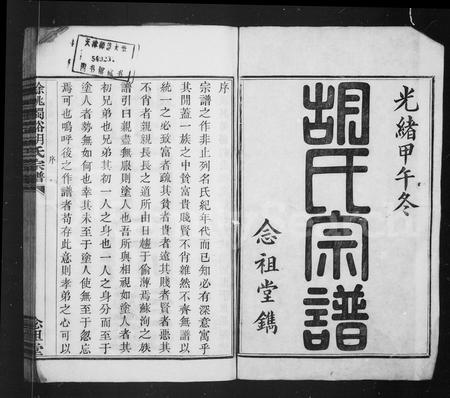 光緒甲午冬
胡氏宗譜
念祖堂鐫
序
宗譜之作非止列名氏紀年代而已知必有深意寓乎
其間蓋一族之中貧富貴賤賢不肖雜然不齊無譜以
統一之必致富者疏其貧者貴者遠其賤者賢者惡其
不肖者親親長長之道所由日趨于偷薄焉蘇洵之族
譜引曰親盡無服則塗人也吾所與相視如塗人者其
初兄弟也兄弟其初一人之身也一人之身分而至于
塗人者勢無如何也幸其未至于塗人使無至于忽忘
焉可也嗚呼後之作譜者苟存此意則孝弟之心可以
胡氏宗譜
序
念祖堂
天津師范大學
圖書館藏書